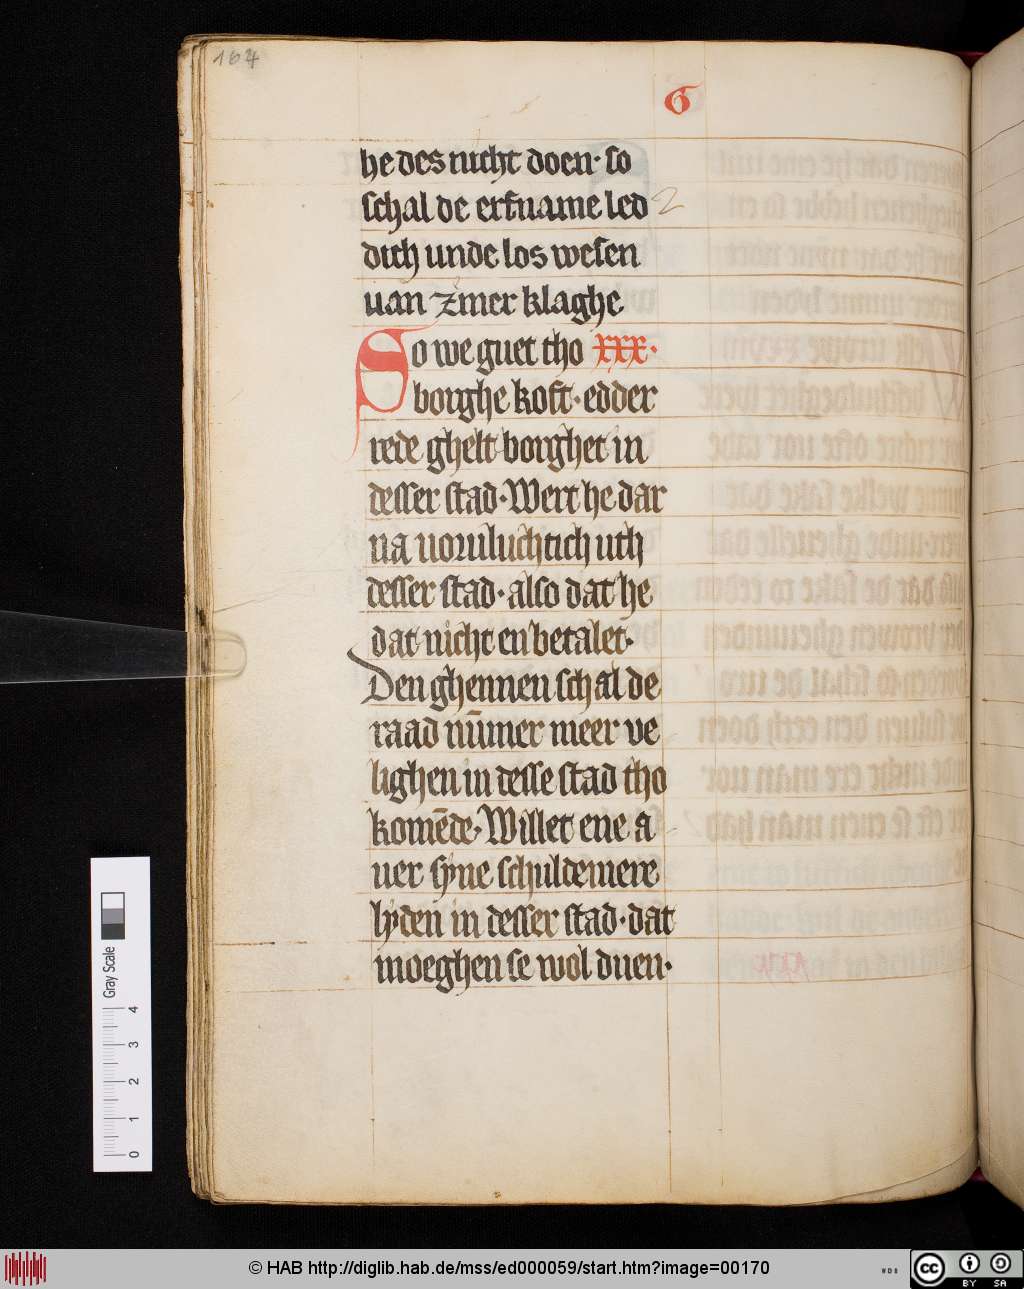 164
G
he des nicht doen· so
schal de erfname led
dich unde los wesen
uan z̃iner klaghe
So we guet tho xxx·
borghe koft· edder
rede ghelt borghet in
desser stad· Wert he dar
na uoruluchtich uth
desser stad· also dat he
dat nicht en betalet·
Den ghennen schal de
raad nūmer meer ve
lighen in desse stad tho
komēde· Willet ene a
uer syne schuldenere
lyden in desser stad· dat
moeghen se wol duen·
Gray Scale
0 1 2 3 4
© HAB http://diglib.hab.de/mss/ed000059/start.htm?image=00170
WDB
cc BY SA